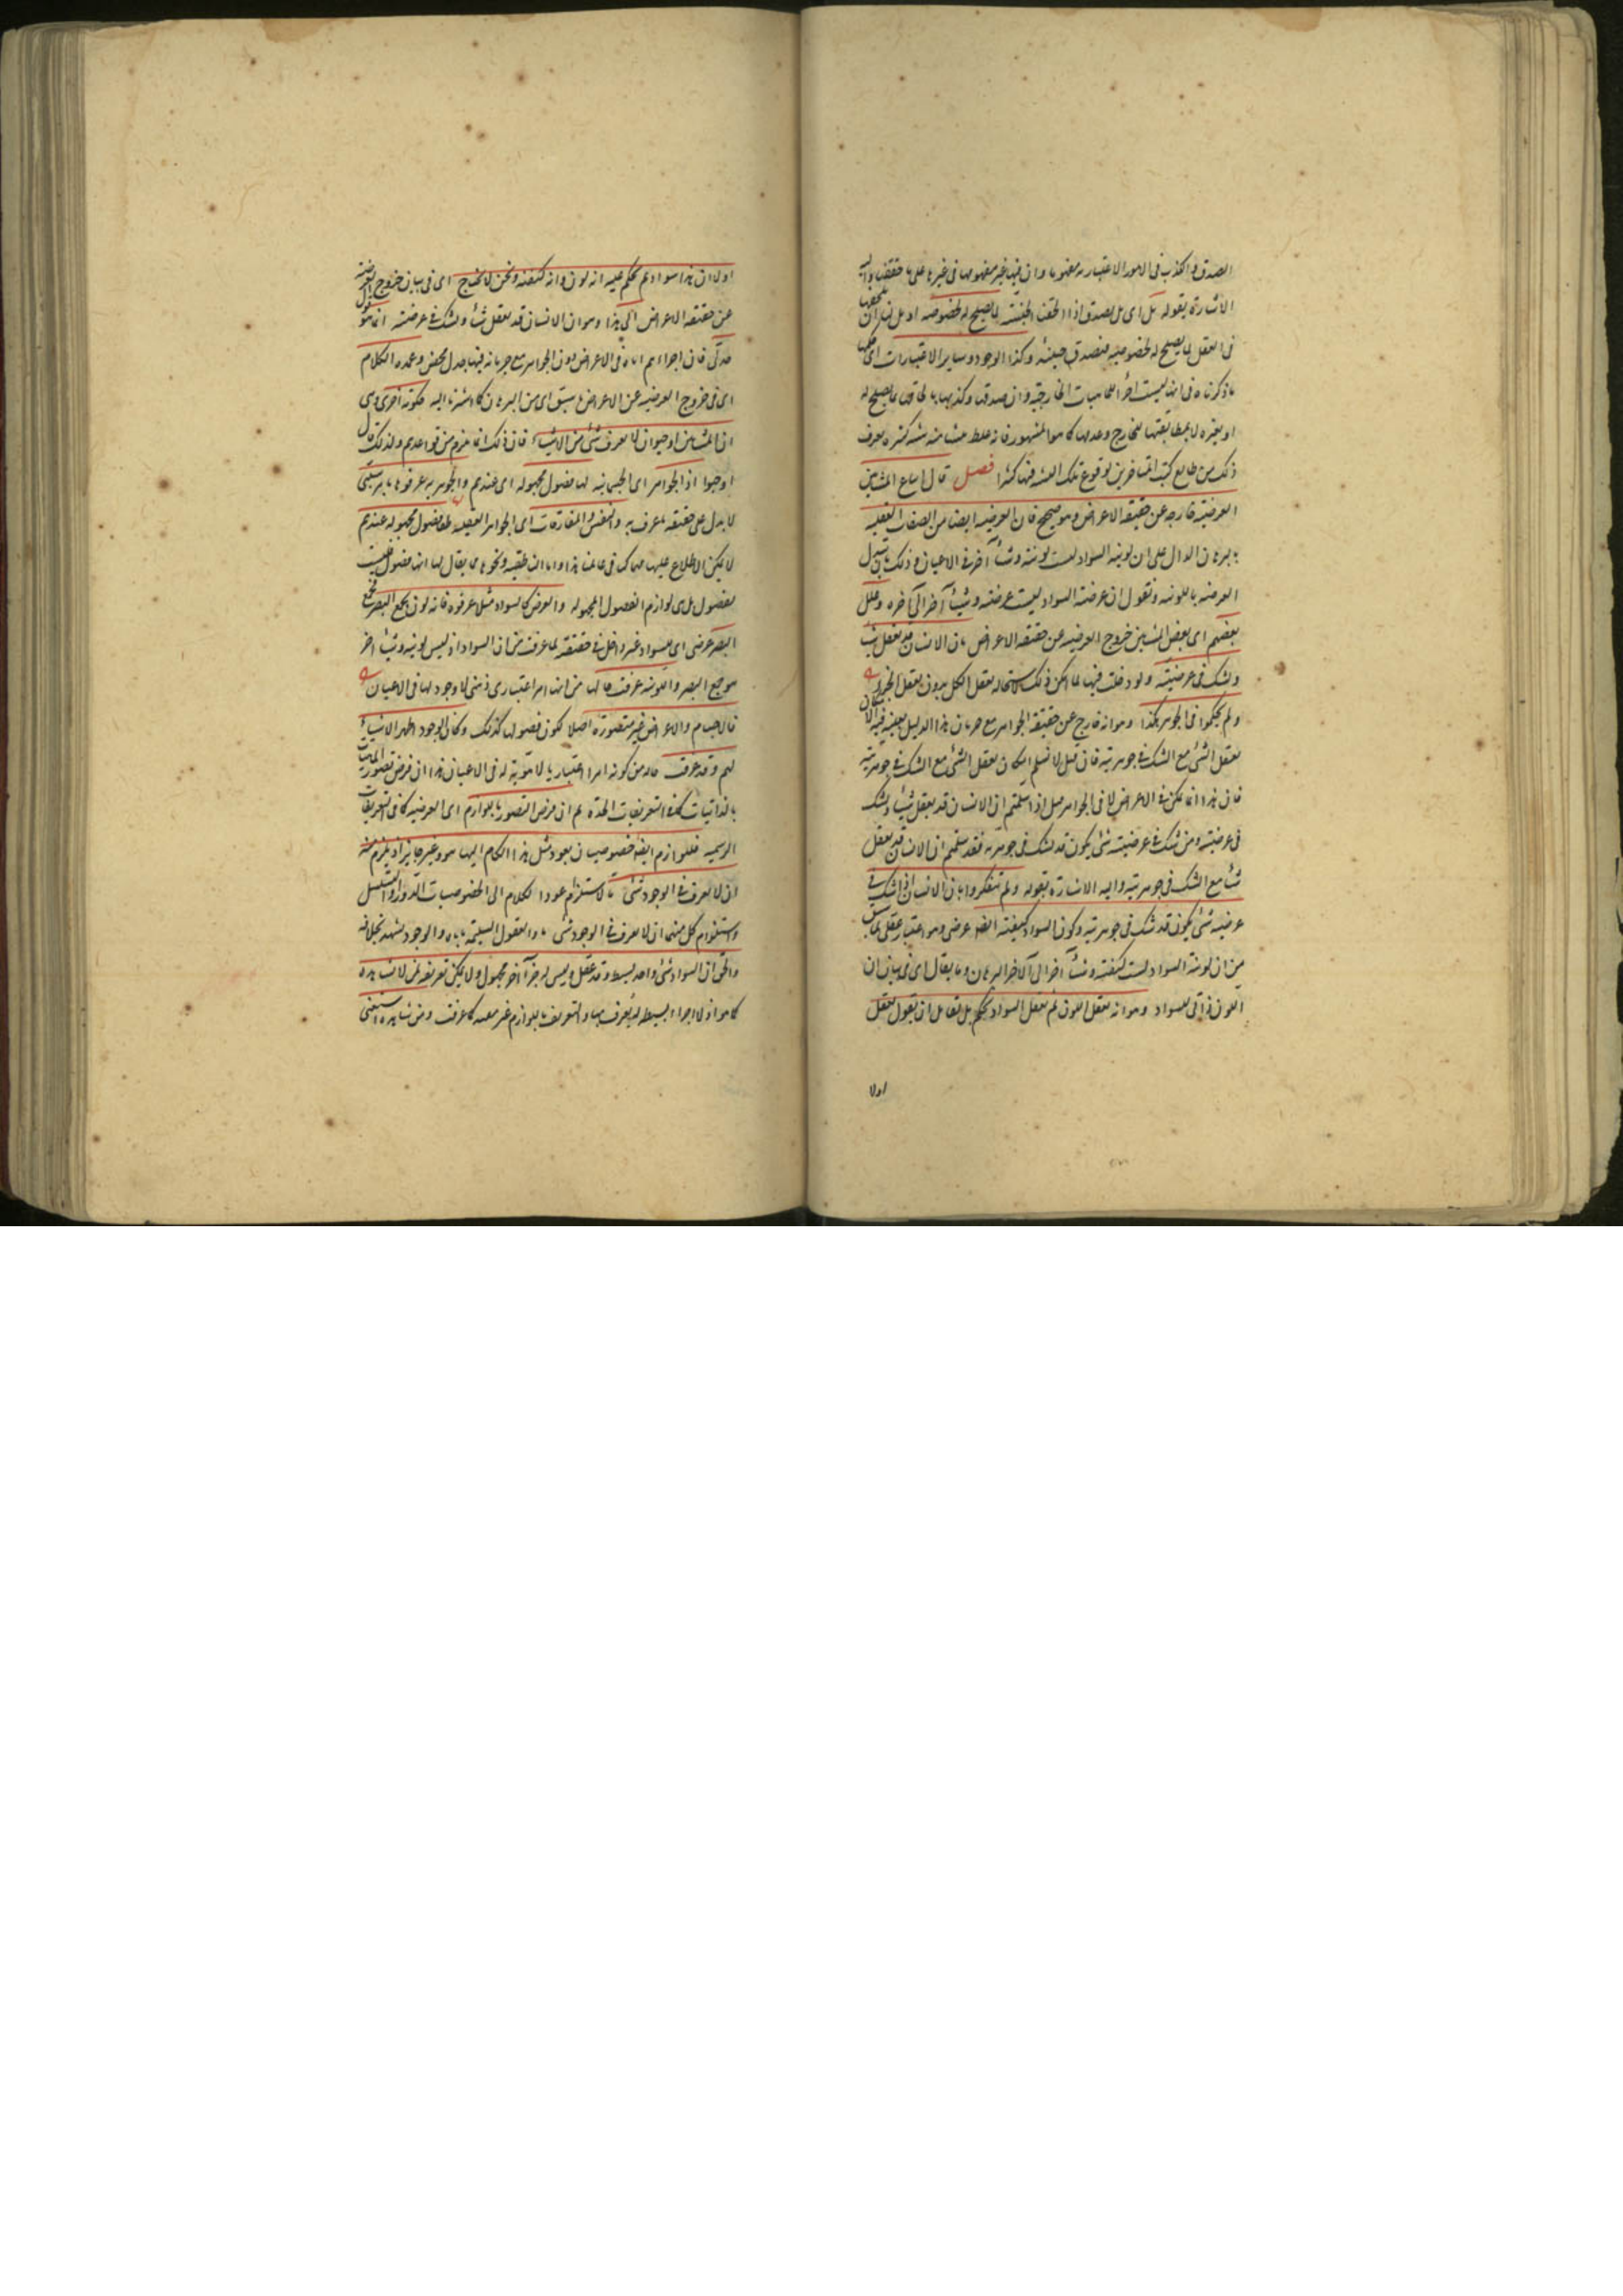 الصدق والكذب فى الامور الاعتبارية مفهومها وان فيها غير مفهومها فى غيرها على ما حققناه واليه
الاشارة بقوله بل اى بل يصدق اذا الحقت الجنسية لما يصلح له لخصوصه او بل نسلم ان
فى العقل لما يصلح له لخصوصيته فتصدق حينئذ وكذا الوجود وساير الاعتبارات اى حكمها
ما ذكرناه فى انها ليست اجزاء للماهيات الخارجية وان صدقها وكذبها بالحاقها بما يصلح له
او بغيره لا بمطابقتها للخارج وعدمها كما هو المشهور فانه غلط منشأ منه شبه كثيرة يعرف
ذلك من طالع كتب المتاخرين لوقوع تلك الشبه فيها كثيرا فصل قال اتباع المشائين
العرضية خارجة عن حقيقة الاعراض وهو صحيح فان العرضية ايضا من الصفات العقلية
بالبرهان الدال على ان لونية السواد ليست لونية وشيئا آخر فى الاعيان وذلك بان يبدل
العرضية باللونية ونقول ان عرضية السواد ليست عرضية وشيئا آخر الى آخره وعلل
بعضهم اى بعض المشائين خروج العرضية عن حقيقة الاعراض بان الانسان قد يعقل شيئا
ويشك فى عرضيته ولو دخلت فيها لما امكن ذلك لاستحالة تعقل الكل بدون تعقل الجزء
ولم يحكموا فى الجوهر بكذا وهو انه خارج عن حقيقة الجواهر مع جريان هذا الدليل بعينه فيه لامكان
تعقل الشئ مع الشك فى جوهريته فان قيل لا نسلم امكان تعقل الشئ مع الشك فى جوهريته
فان هذا انما يمكن فى الاعراض لا فى الجواهر قيل اذا سلمتم ان الانسان قد يعقل شيئا ويشك
فى عرضيته ومن شك فى عرضيته شئ يكون قد شك فى جوهريته فقد سلمتم ان الانسان قد يعقل
شيئا مع الشك فى جوهريته واليه الاشارة بقوله ولم يتفكروا بان الانسان اذا شك فى
عرضية شئ يكون قد شك فى جوهريته وكون السواد كيفية ايضا عرضى وهو اعتبار عقلى لما سبق
من ان لونية السواد ليست كيفية وشيئا آخر الى آخر البرهان وما يقال اى فى بيان ان
اللون ذاتى للسواد وهو انه نعقل اللون ثم نعقل السواد تحكم بل لقائل ان يقول نعقل
اولا
اولا ان هذا سواد ثم نحكم عليه انه لون وانه كيفية ونحن لا نحتاج اى فى بيان خروج العرضية
عن حقيقة الاعراض الى هذا وهو ان الانسان قد يعقل شيئا ويشك فى عرضيته انما هو قول
جدلى فان اجراءهم اياه فى الاعراض دون الجواهر مع جريانه فيها جدل محض وعمدة الكلام
اى فى خروج العرضية عن الاعراض ما سبق اى من البرهان كما اشرنا اليه حكومة اخرى وهى
ان المشائين اوجبوا ان لا يعرف شئ من الاشياء فان ذلك انما يلزم من قواعدهم ولذلك قال
اوجبوا اذ الجواهر اى الجسمانية لها فصول مجهولة اى عندهم والجوهرية عرفوها بامر سلبى
لا يدل على حقيقة المعرف به والنفس والمفارقات اى الجواهر العقلية لها فصول مجهولة عندهم
لا يمكن الاطلاع عليها مهما ك فى عالمنا هذا واما الناطقية ونحوها مما يقال لها انها فصول فليست
بفصول بل هى لوازم الفصول المجهولة والعرض كالسواد مثلا عرفوه فانه لون يجمع البصر فجمع
البصر عرضى اى للسواد غير داخل فى حقيقته لما عرفت من ان السواد اذ ليس لونية وشيئا آخر
هو جمع البصر واللونية عرفت حالها من انها امر اعتبارى ذهنى لا وجود لها فى الاعيان
فالاجسام والاعراض غير متصورة اصلا لكون فصولها كذلك وكان الوجود اظهر الاشياء
لهم وقد عرفت حاله من كونه امرا اعتباريا لا هوية له فى الاعيان هذا ان فرض تصور الماهيات
بالذاتيات كما فى التعريفات الحدية ثم ان فرض التصور باللوازم اى العرضية كما فى التعريفات
الرسمية فللوازم ايضا خصوصيات يعود مثل هذا الكلام اليها وهو غير جايز اذ يلزم منه
ان لا يعرف فى الوجود شئ ما لاستلزام عود الكلام الى الخصوصيات الدور او التسلسل
واستلزام كل منهما ان لا يعرف فى الوجود شئ ما والعقول السليمة تاباه والوجود يشهد بخلافه
والحق ان السواد شئ واحد بسيط وقد عقل وليس له جزء آخر مجهول ولا يمكن تعريفه لمن لا يشاهده
كما هو اذ لا اجزاء لبسيط له يعرف بها والتعريف باللوازم غير معبه كما عرفت ومن شاهده استغنى